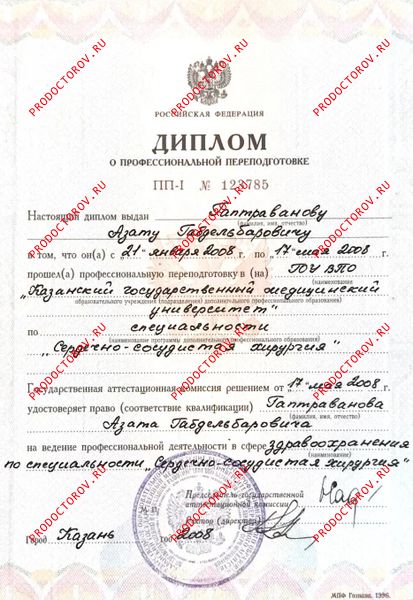 РОССИЙСКАЯ ФЕДЕРАЦИЯ
ДИПЛОМ
О ПРОФЕССИОНАЛЬНОЙ ПЕРЕПОДГОТОВКЕ
ПП-I № 123785
Настоящий диплом выдан Гаптраванову
(фамилия, имя, отчество)
Азату Габдельбаровичу
в том, что он(а) с 21 января 2008 г. по 17 мая 2008 г.
прошел(а) профессиональную переподготовку в (на) ГОУ ВПО
(наименование
„Казанский государственный медицинский
образовательного учреждения (подразделения) дополнительного профессионального образования)
университет"
по специальности
(наименование программы дополнительного профессионального образования)
„Сердечно-сосудистая хирургия"
Государственная аттестационная комиссия решением от 17 мая 2008 г.
удостоверяет право (соответствие квалификации) Гаптраванова
(фамилия, имя, отчество)
Азата Габдельбаровича
на ведение профессиональной деятельности в сфере здравоохранения
(наименование)
по специальности „Сердечно-сосудистая хирургия"
Председатель государственной
аттестационной комиссии
Ректор (директор)
Город Казань год 2008
МПФ Гознака. 1996.
PRODOCTOROV.RU